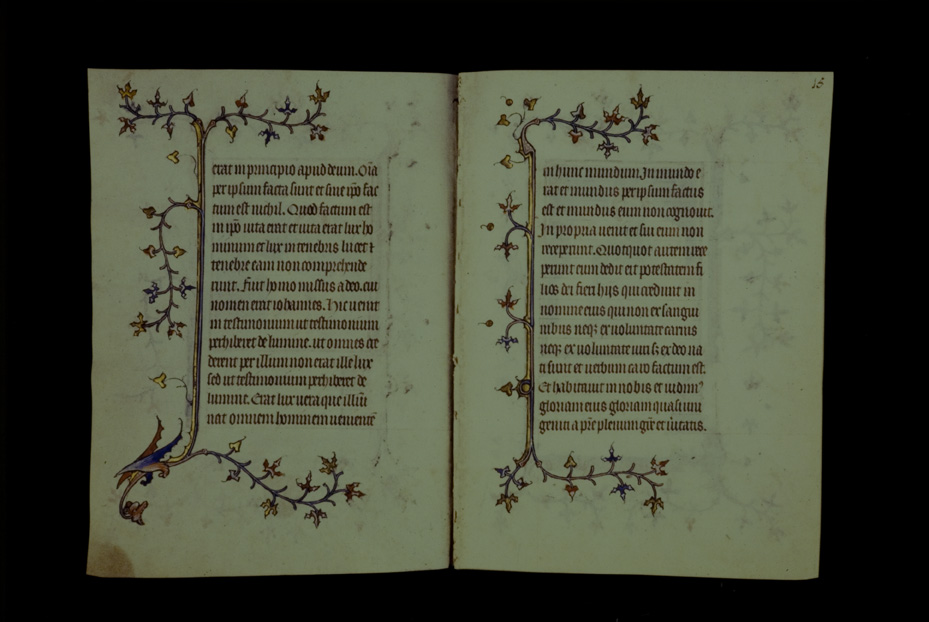 erat in principio apud deum. Oĩa
per ipsum facta sunt et sine ip̃o fac
tum est nichil. Quod factum est
in ip̃o uita erat et uita erat lux ho
minum et lux in tenebris lucet ⁊
tenebre eam non comprehende
runt. Fuit homo missus a deo. cui
nomen erat iohannes. Hic uenit
in testimonium ut testimonium
perhiberet de lumine. ut omnes cre
derent per illum non erat ille lux
sed ut testimonium perhiberet de
lumine. Erat lux uera que illũi
nat omnem hominem uenientẽ
15
in hunc mundum. In mundo e
rat et mundus per ipsum factus
est et mundus eum non cognouit.
In propria uenit et sui eum non
receperunt. Quotquot autem rece
perunt eum dedit eis potestatem fi
lios dei fieri hijs qui credunt in
nomine eius qui non ex sangui
nibus neqꝫ ex uoluntate carnis
neqꝫ ex uoluntate uiri sꝫ ex deo na
ti sunt et uerbum caro factum est.
Et habitauit in nobis et uidimꝰ
gloriam eius gloriam quasi uni
geniti a pr̃e plenum gr̃e et ũitatis.